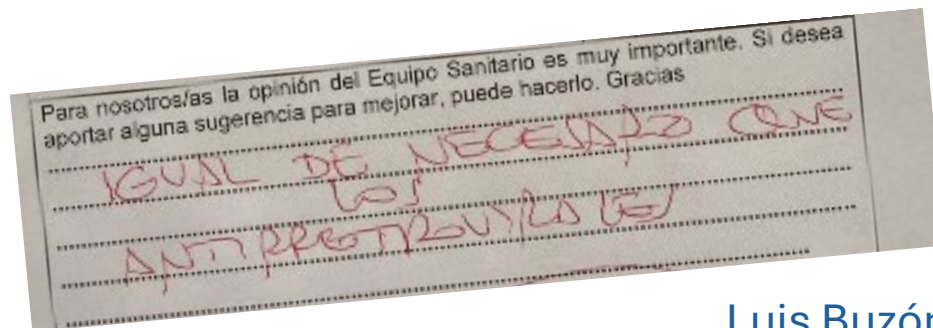 Para nosotros/as la opinión del Equipo Sanitario es muy importante. Si desea
aportar alguna sugerencia para mejorar, puede hacerlo. Gracias
IGUAL DE NECESARIO QUE
LOS
ANTIRRETROVIRALES
Luis Buzón